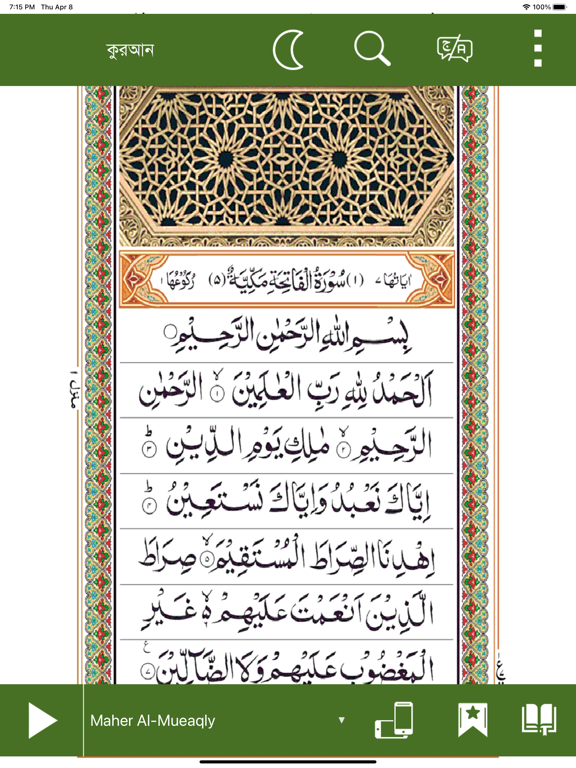 7:15 PM Thu Apr 8 100%
কুরআন
اٰیَاتُهَا ٧ (١) سُوْرَةُ الْفَاتِحَةِ مَكِّيَّةٌ (٥) رُكُوْعُهَا ١
بِسْمِ اللّٰهِ الرَّحْمٰنِ الرَّحِيْمِ
اَلْحَمْدُ لِلّٰهِ رَبِّ الْعٰلَمِيْنَ ۙ‏ ١ الرَّحْمٰنِ
الرَّحِيْمِ ۙ‏ ٢ مٰلِكِ يَوْمِ الدِّيْنِ ؕ‏ ٣
اِيَّاكَ نَعْبُدُ وَاِيَّاكَ نَسْتَعِيْنُ ؕ‏ ٤
اِهْدِنَا الصِّرَاطَ الْمُسْتَقِيْمَ ۙ‏ ٥ صِرَاطَ
الَّذِيْنَ اَنْعَمْتَ عَلَيْهِمْ ۙ ٦ غَيْرِ
الْمَغْضُوْبِ عَلَيْهِمْ وَلَا الضَّآلِّيْنَ ٧ ع
منزل ١
Maher Al-Mueaqly